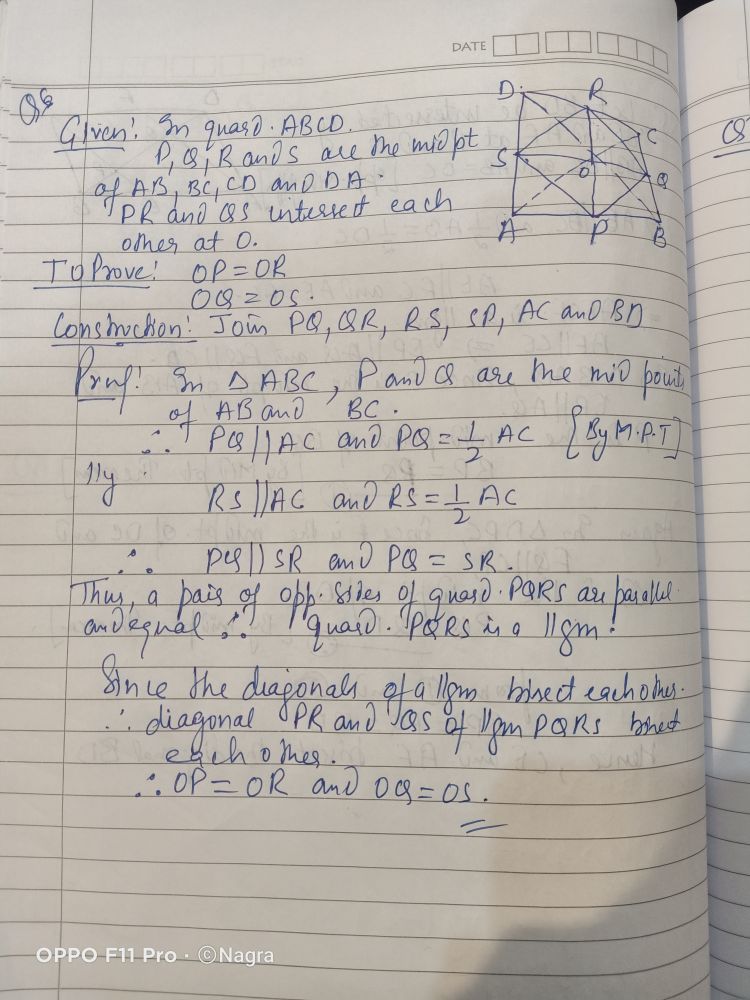 DATE
Q6
Given: In quard. ABCD.
P, Q, R and S are the mid pt
of AB, BC, CD and DA.
PR and QS intersect each
other at O.
D
R
C
S
O
Q
A
P
B
To Prove: OP = OR
OQ = OS.
Construction: Join PQ, QR, RS, SP, AC and BD
Proof: In △ ABC, P and Q are the mid points
of AB and BC.
∴ PQ || AC and PQ = 1/2 AC [By M.P.T]
||ly
RS || AC and RS = 1/2 AC
∴ PQ || SR and PQ = SR.
Thus, a pair of opp. sides of quard. PQRS are parallel
and equal ∴ quard. PQRS is a ||gm.
Since the diagonals of a ||gm bisect each other.
∴ diagonal PR and QS of ||gm PQRS bisect
each other.
∴ OP = OR and OQ = OS.
OPPO F11 Pro · ©Nagra